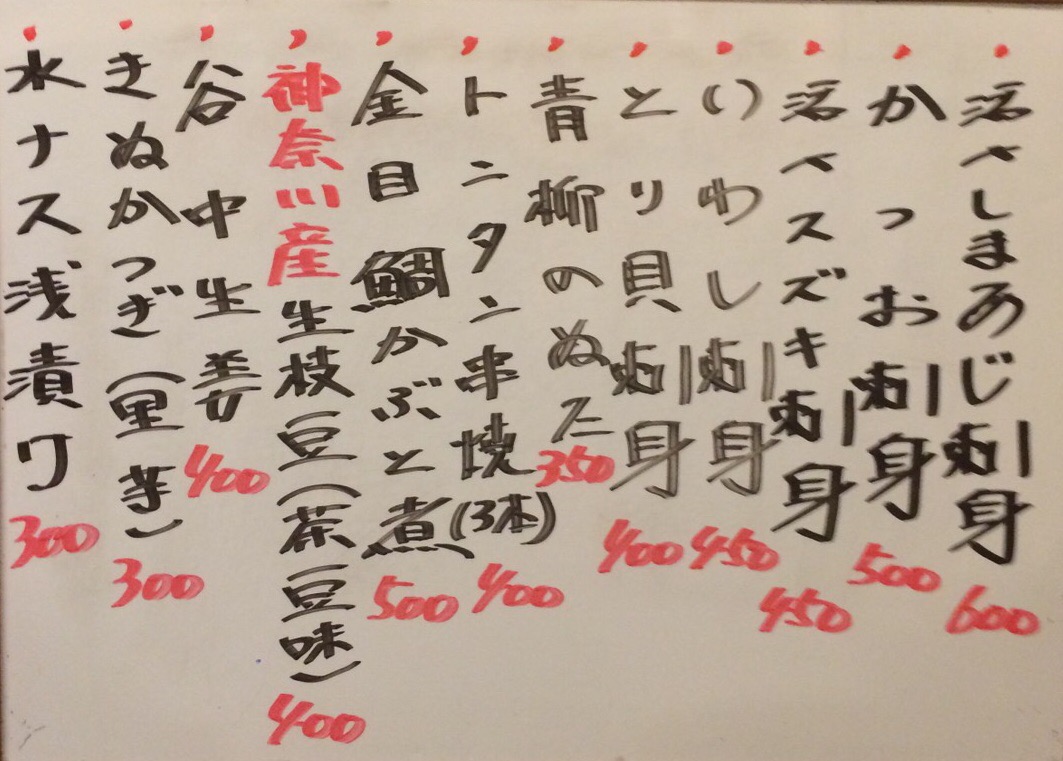 活〆しまあじ刺身 600
かつお刺身 500
活〆スズキ刺身 450
いわし刺身 450
とり貝刺身 400
青柳のぬた 350
トンタン串焼(3本) 400
金目鯛かぶと煮 500
神奈川産生枝豆(茶豆味) 400
谷中生姜 400
きぬかつぎ(里芋) 300
水ナス浅漬け 300